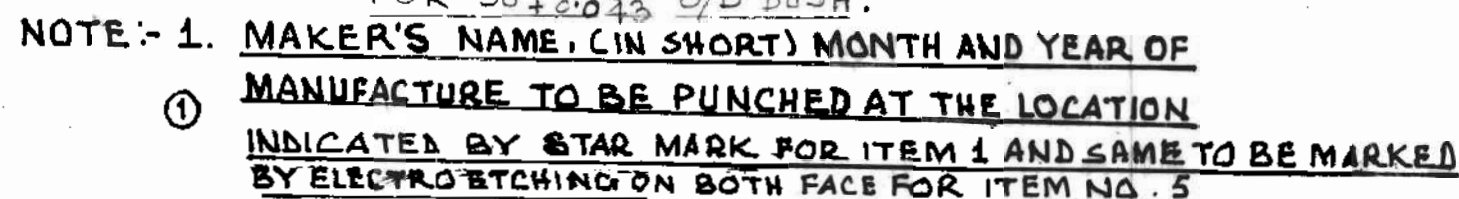 +0.043 O/D BUSH.
NOTE:- 1. MAKER'S NAME, (IN SHORT) MONTH AND YEAR OF
MANUFACTURE TO BE PUNCHED AT THE LOCATION
1
INDICATED BY STAR MARK FOR ITEM 1 AND SAME TO BE MARKED
BY ELECTRO ETCHING ON BOTH FACE FOR ITEM NO. 5